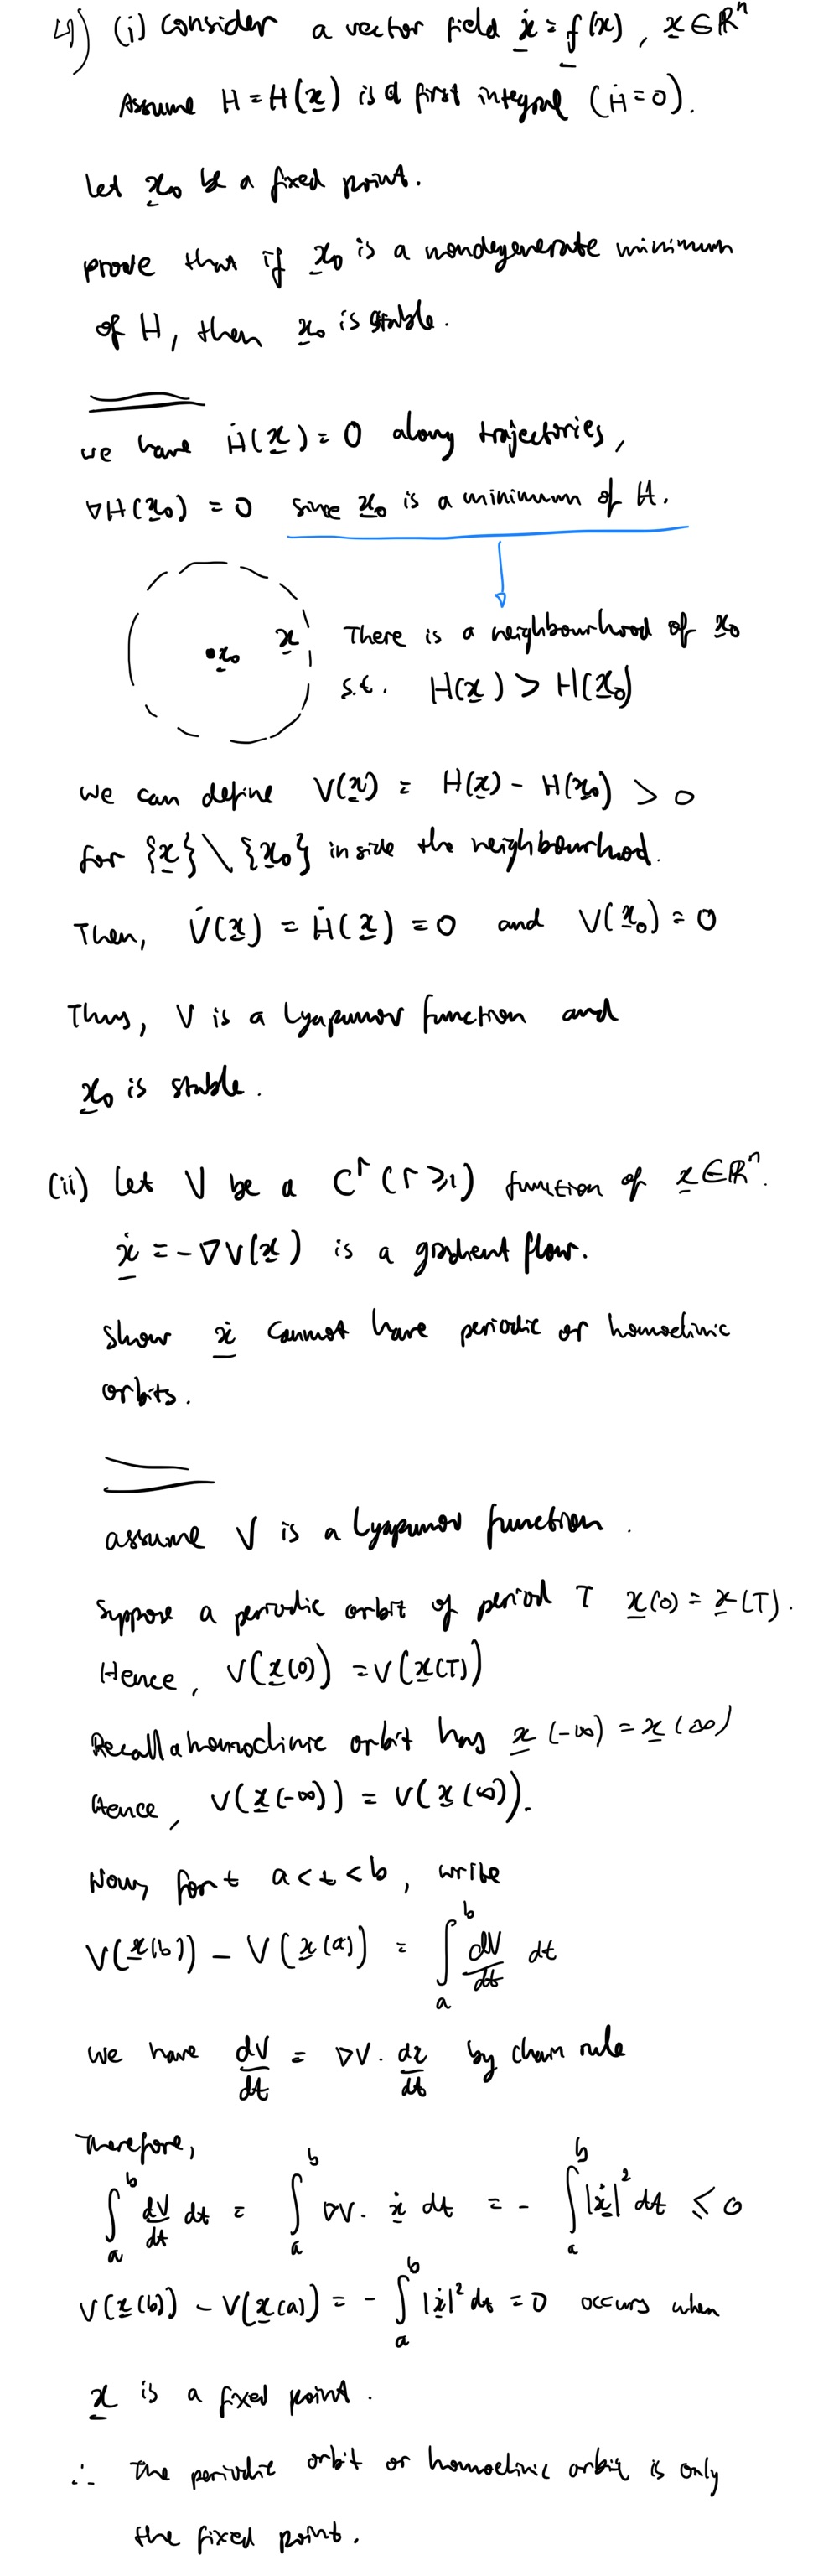 4) (i) Consider a vector field ẋ = f(x), x ∈ ℝⁿ
Assume H = H(x) is a first integral (Ḣ = 0).
Let x₀ be a fixed point.
prove that if x₀ is a nondegenerate minimum
of H, then x₀ is stable.
we have Ḣ(x) = 0 along trajectories,
∇H(x₀) = 0 since x₀ is a minimum of H.
•x₀ x There is a neighbourhood of x₀
s.t. H(x) > H(x₀)
We can define V(x) = H(x) - H(x₀) > 0
for {x} \ {x₀} inside the neighbourhood.
Then, V̇(x) = Ḣ(x) = 0 and V(x₀) = 0
Thus, V is a Lyapunov function and
x₀ is stable.
(ii) Let V be a Cʳ (r ⩾ 1) function of x ∈ ℝⁿ.
ẋ = -∇V(x) is a gradient flow.
Show ẋ cannot have periodic or homoclinic
orbits.
assume V is a Lyapunov function.
Suppose a periodic orbit of period T x(0) = x(T).
Hence, V(x(0)) = V(x(T))
Recall a homoclinic orbit has x(-∞) = x(∞)
Hence, V(x(-∞)) = V(x(∞)).
Now, for t a < t < b, write
V(x(b)) - V(x(a)) = ∫ₐᵇ dV/dt dt
We have dV/dt = ∇V · dx/dt by chain rule
Therefore,
∫ₐᵇ dV/dt dt = ∫ₐᵇ ∇V · ẋ dt = - ∫ₐᵇ |ẋ|² dt ≤ 0
V(x(b)) - V(x(a)) = - ∫ₐᵇ |ẋ|² dt = 0 occurs when
x is a fixed point.
∴ The periodic orbit or homoclinic orbit is only
the fixed point.